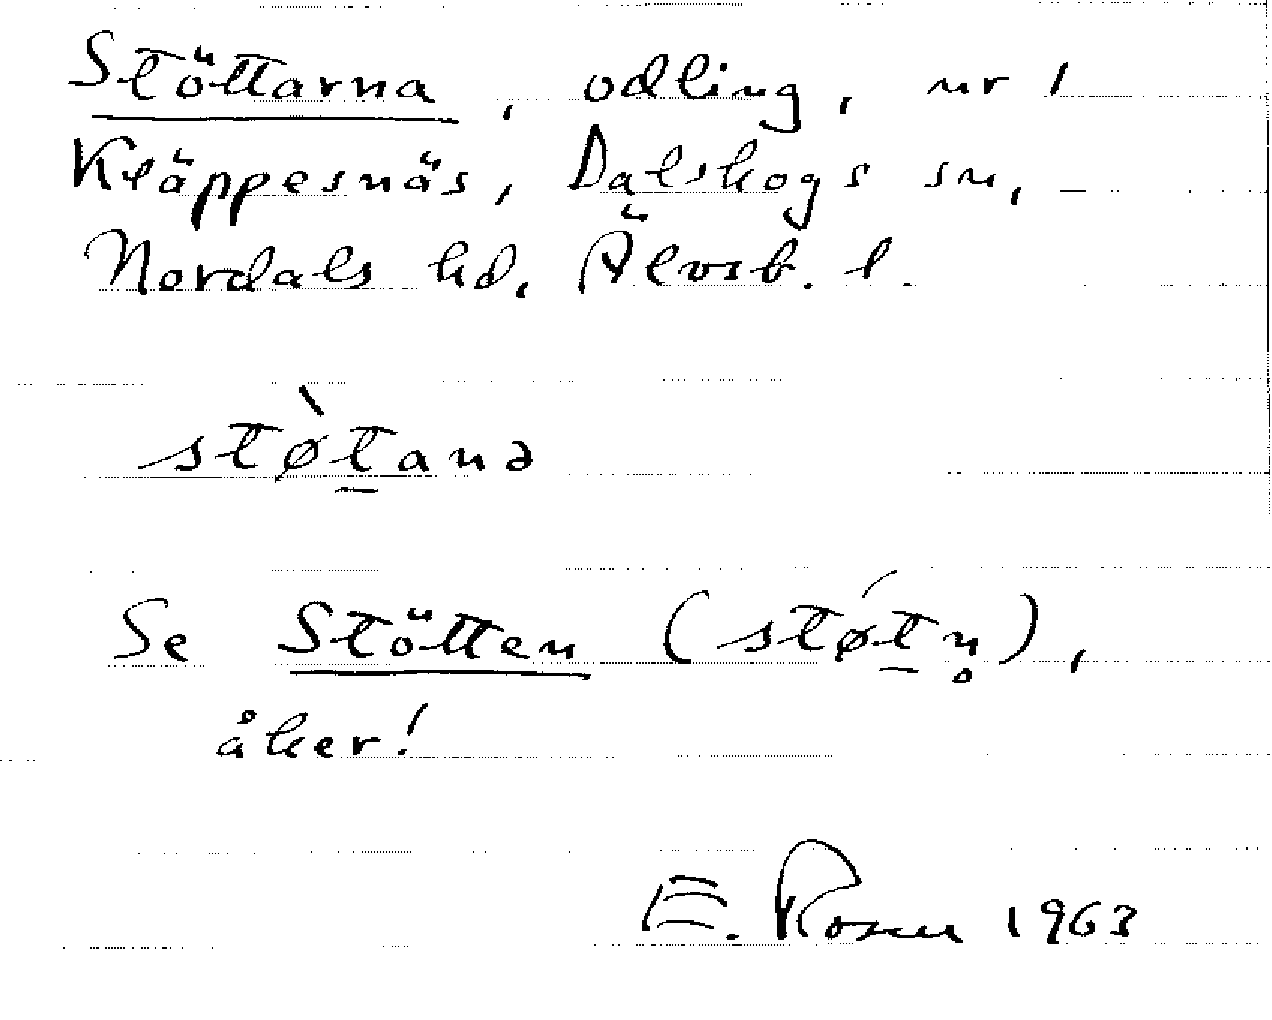 Stöttarna, odling, nr 1
Kläppesnäs, Dalskogs sn,
Nordals hd, Älvsb. l.
stø̀t̠anə
Se Stötten (støt̠́n̥),
åker!
E. Rosen 1963